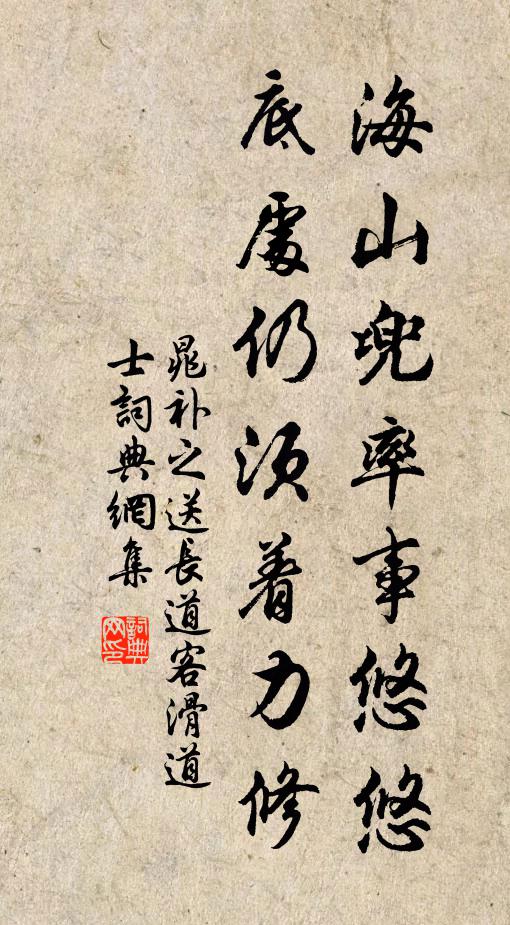 海山兜率事悠悠
底處仍須着力修
晁补之送長道客滑道
士詞典網集
詞典
网印